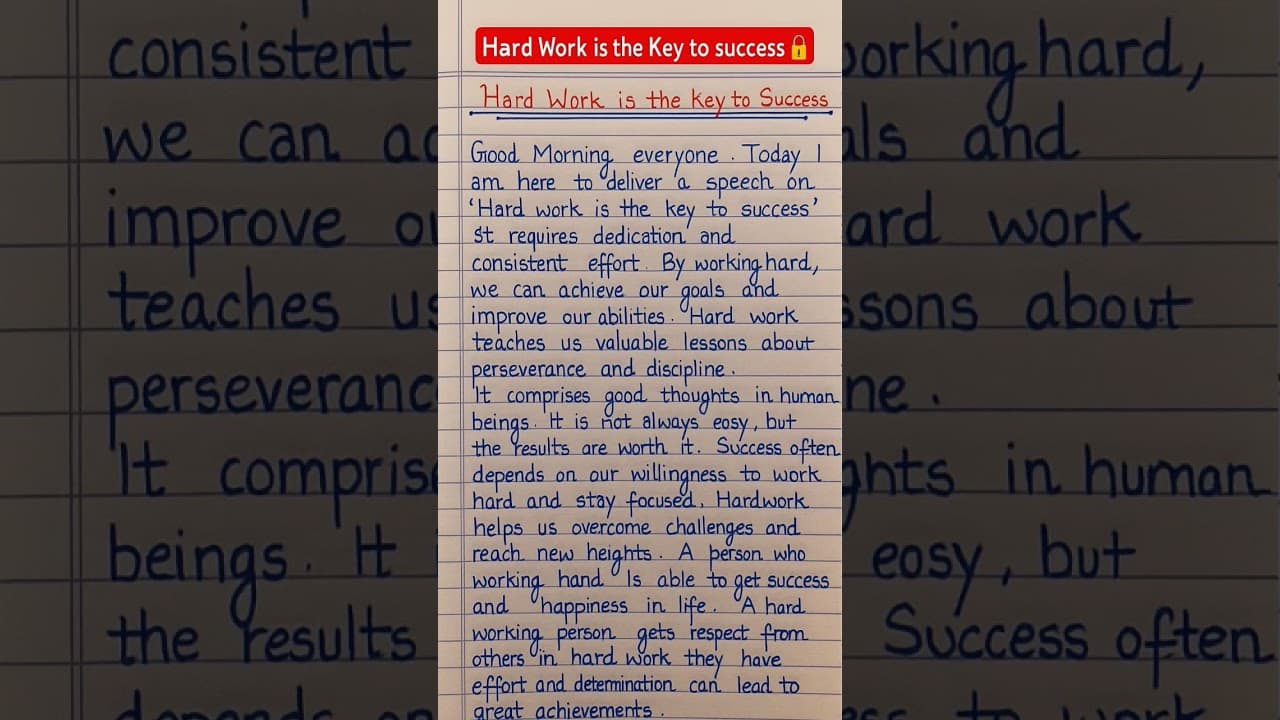 Hard Work is the Key to success🔒
Hard Work is the Key to Success
Good Morning everyone. Today I
am here to deliver a speech on
'Hard work is the key to success'
It requires dedication and
consistent effort. By working hard,
we can achieve our goals and
improve our abilities. Hard work
teaches us valuable lessons about
perseverance and discipline.
It comprises good thoughts in human
beings. It is not always eosy, but
the results are worth it. Success often
depends on our willingness to work
hard and stay focused. Hardwork
helps us overcome challenges and
reach new heights. A person who
working hand Is able to get success
and happiness in life. A hard
working person gets respect from
others in hard work they have
effort and determination can lead to
great achievements.
consistent
we can ac
improve ou
teaches us
perseveranc
It comprise
beings. It
the results
orking hard,
als and
ard work
ssons about
ne.
ghts in human
eosy, but
Success often